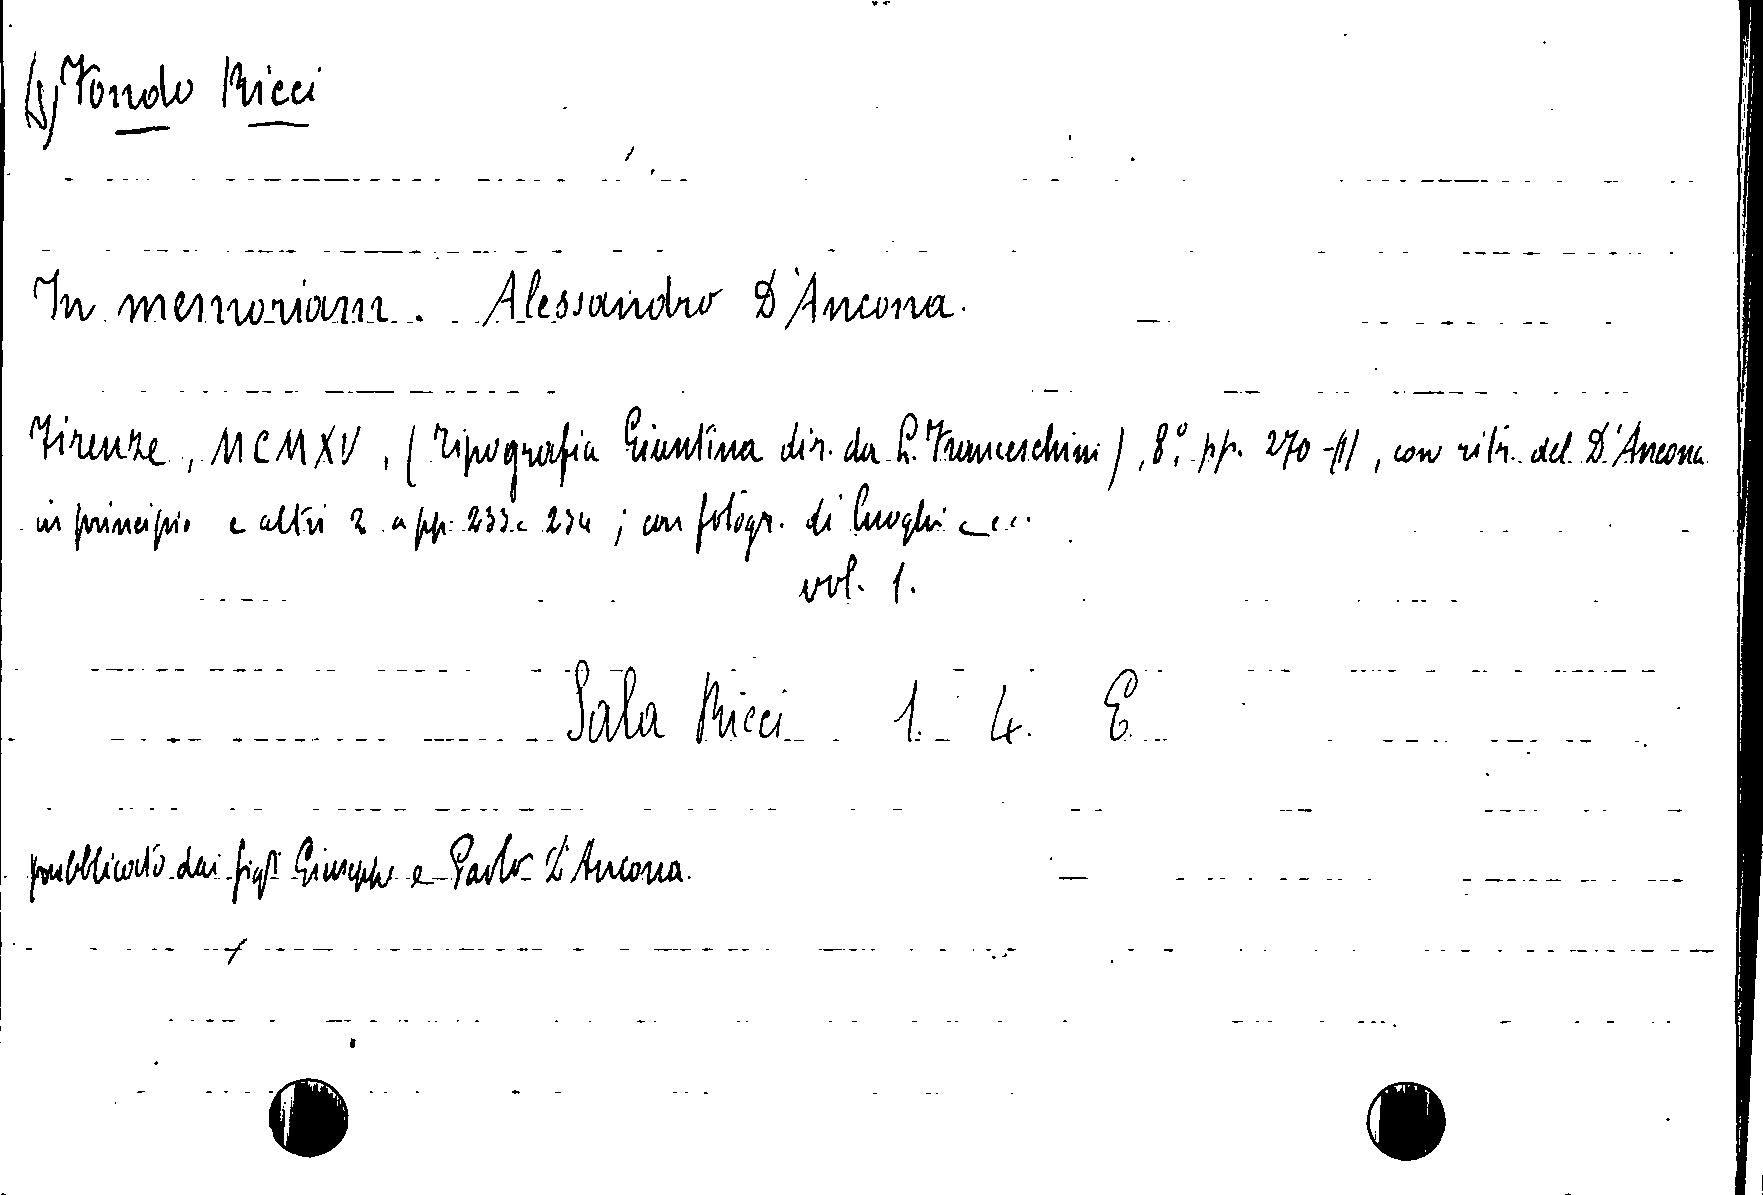 Fondo Ricci
In memoriam. Alessandro D'Ancona.
Firenze, MCMXV, (Tipografia Giuntina dir. da L. Franceschini), 8°, pp. 270-, con ritr. del D'Ancona
in principio e altri 2 a pp. 233 e 234; con fotogr. di luoghi ecc.
vol. 1.
Sala Ricci 1. 4. E
pubblicato dai figli Giuseppe e Paolo D'Ancona.